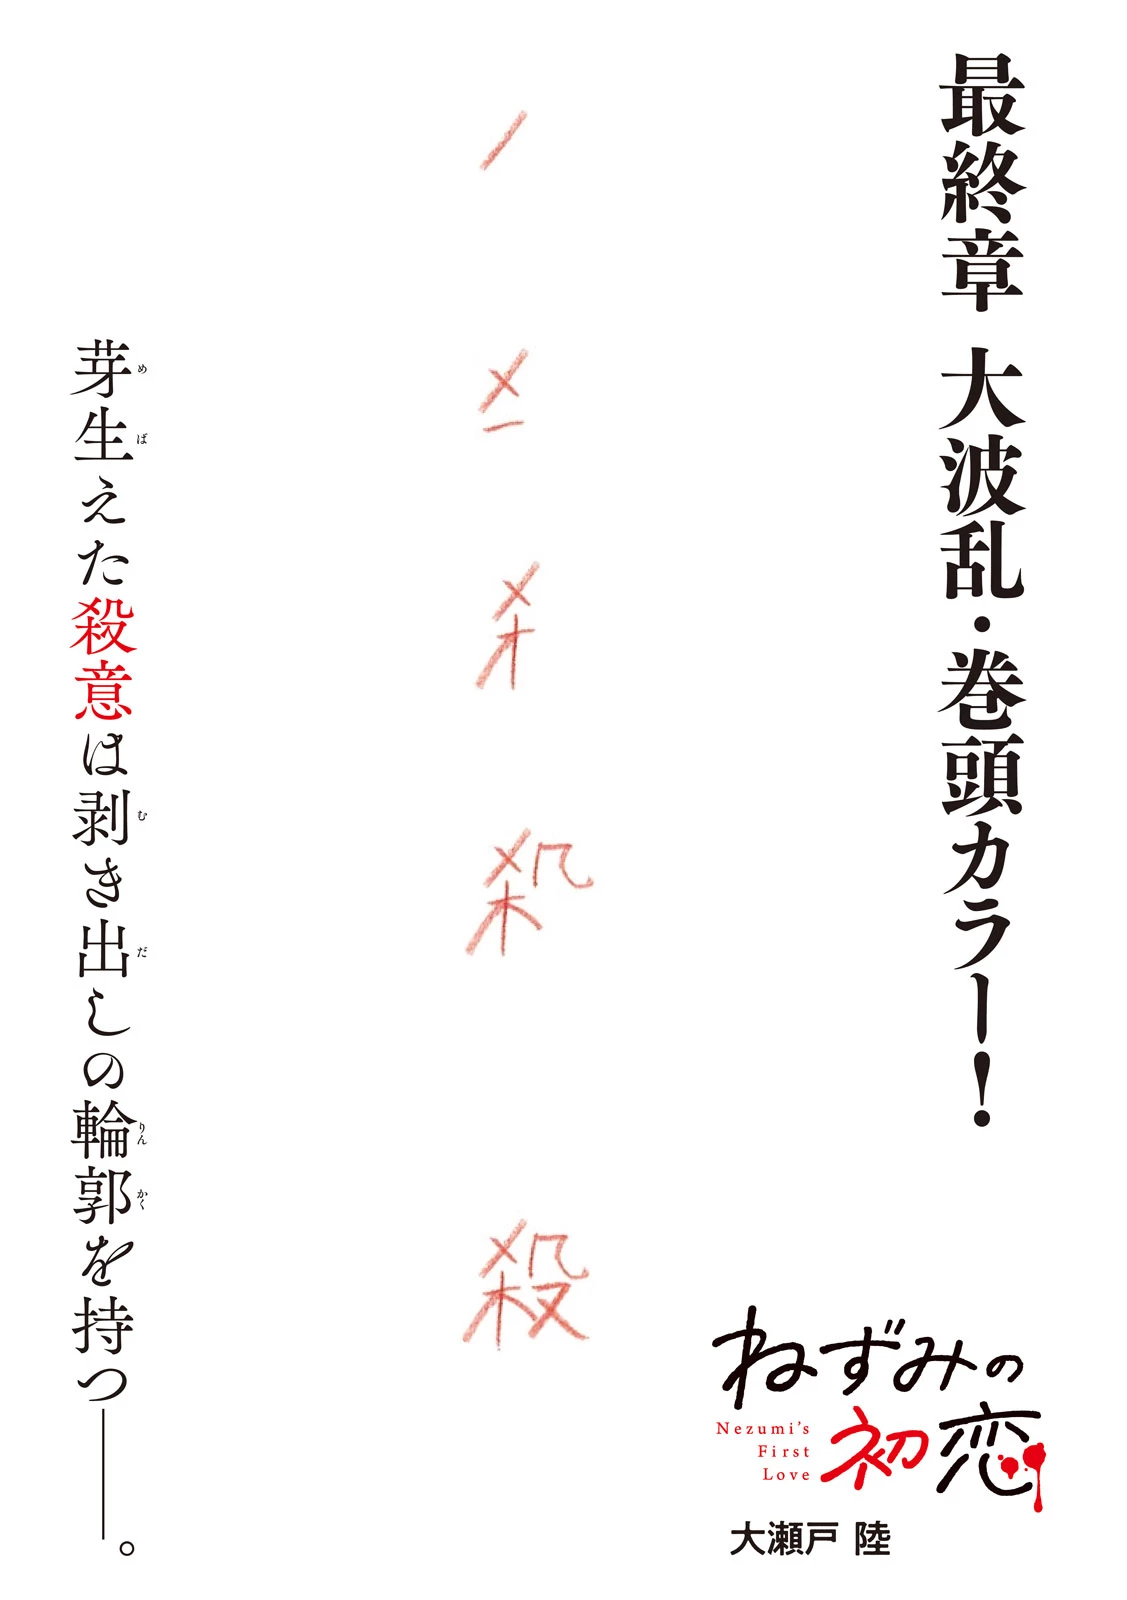 最終章 大波乱・巻頭カラー！
殺
芽生えた殺意は剥き出しの輪郭を持つ――。
ねずみの
初恋
Nezumi's
First
Love
大瀬戸 陸